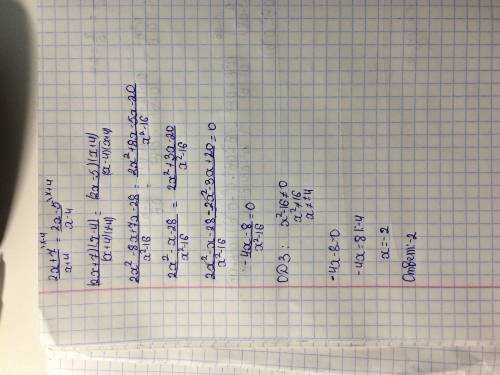 2x+7/x+4 ^x-4 = 2x-5/x-4 ^x+4
(2x+7)(x-4)/(x+4)(x-4) = (2x-5)(x+4)/(x-4)(x+4)
2x²-8x+7x-28/x²-16 = 2x²+8x-5x-20/x²-16
2x²-x-28/x²-16 = 2x²+3x-20/x²-16
2x²-x-28-2x²-3x+20/x²-16 = 0
-4x-8/x²-16 = 0
ОДЗ: x²-16≠0
x²≠16
x≠±4
-4x-8=0
-4x=8 |:-4
x=-2
Ответ:-2